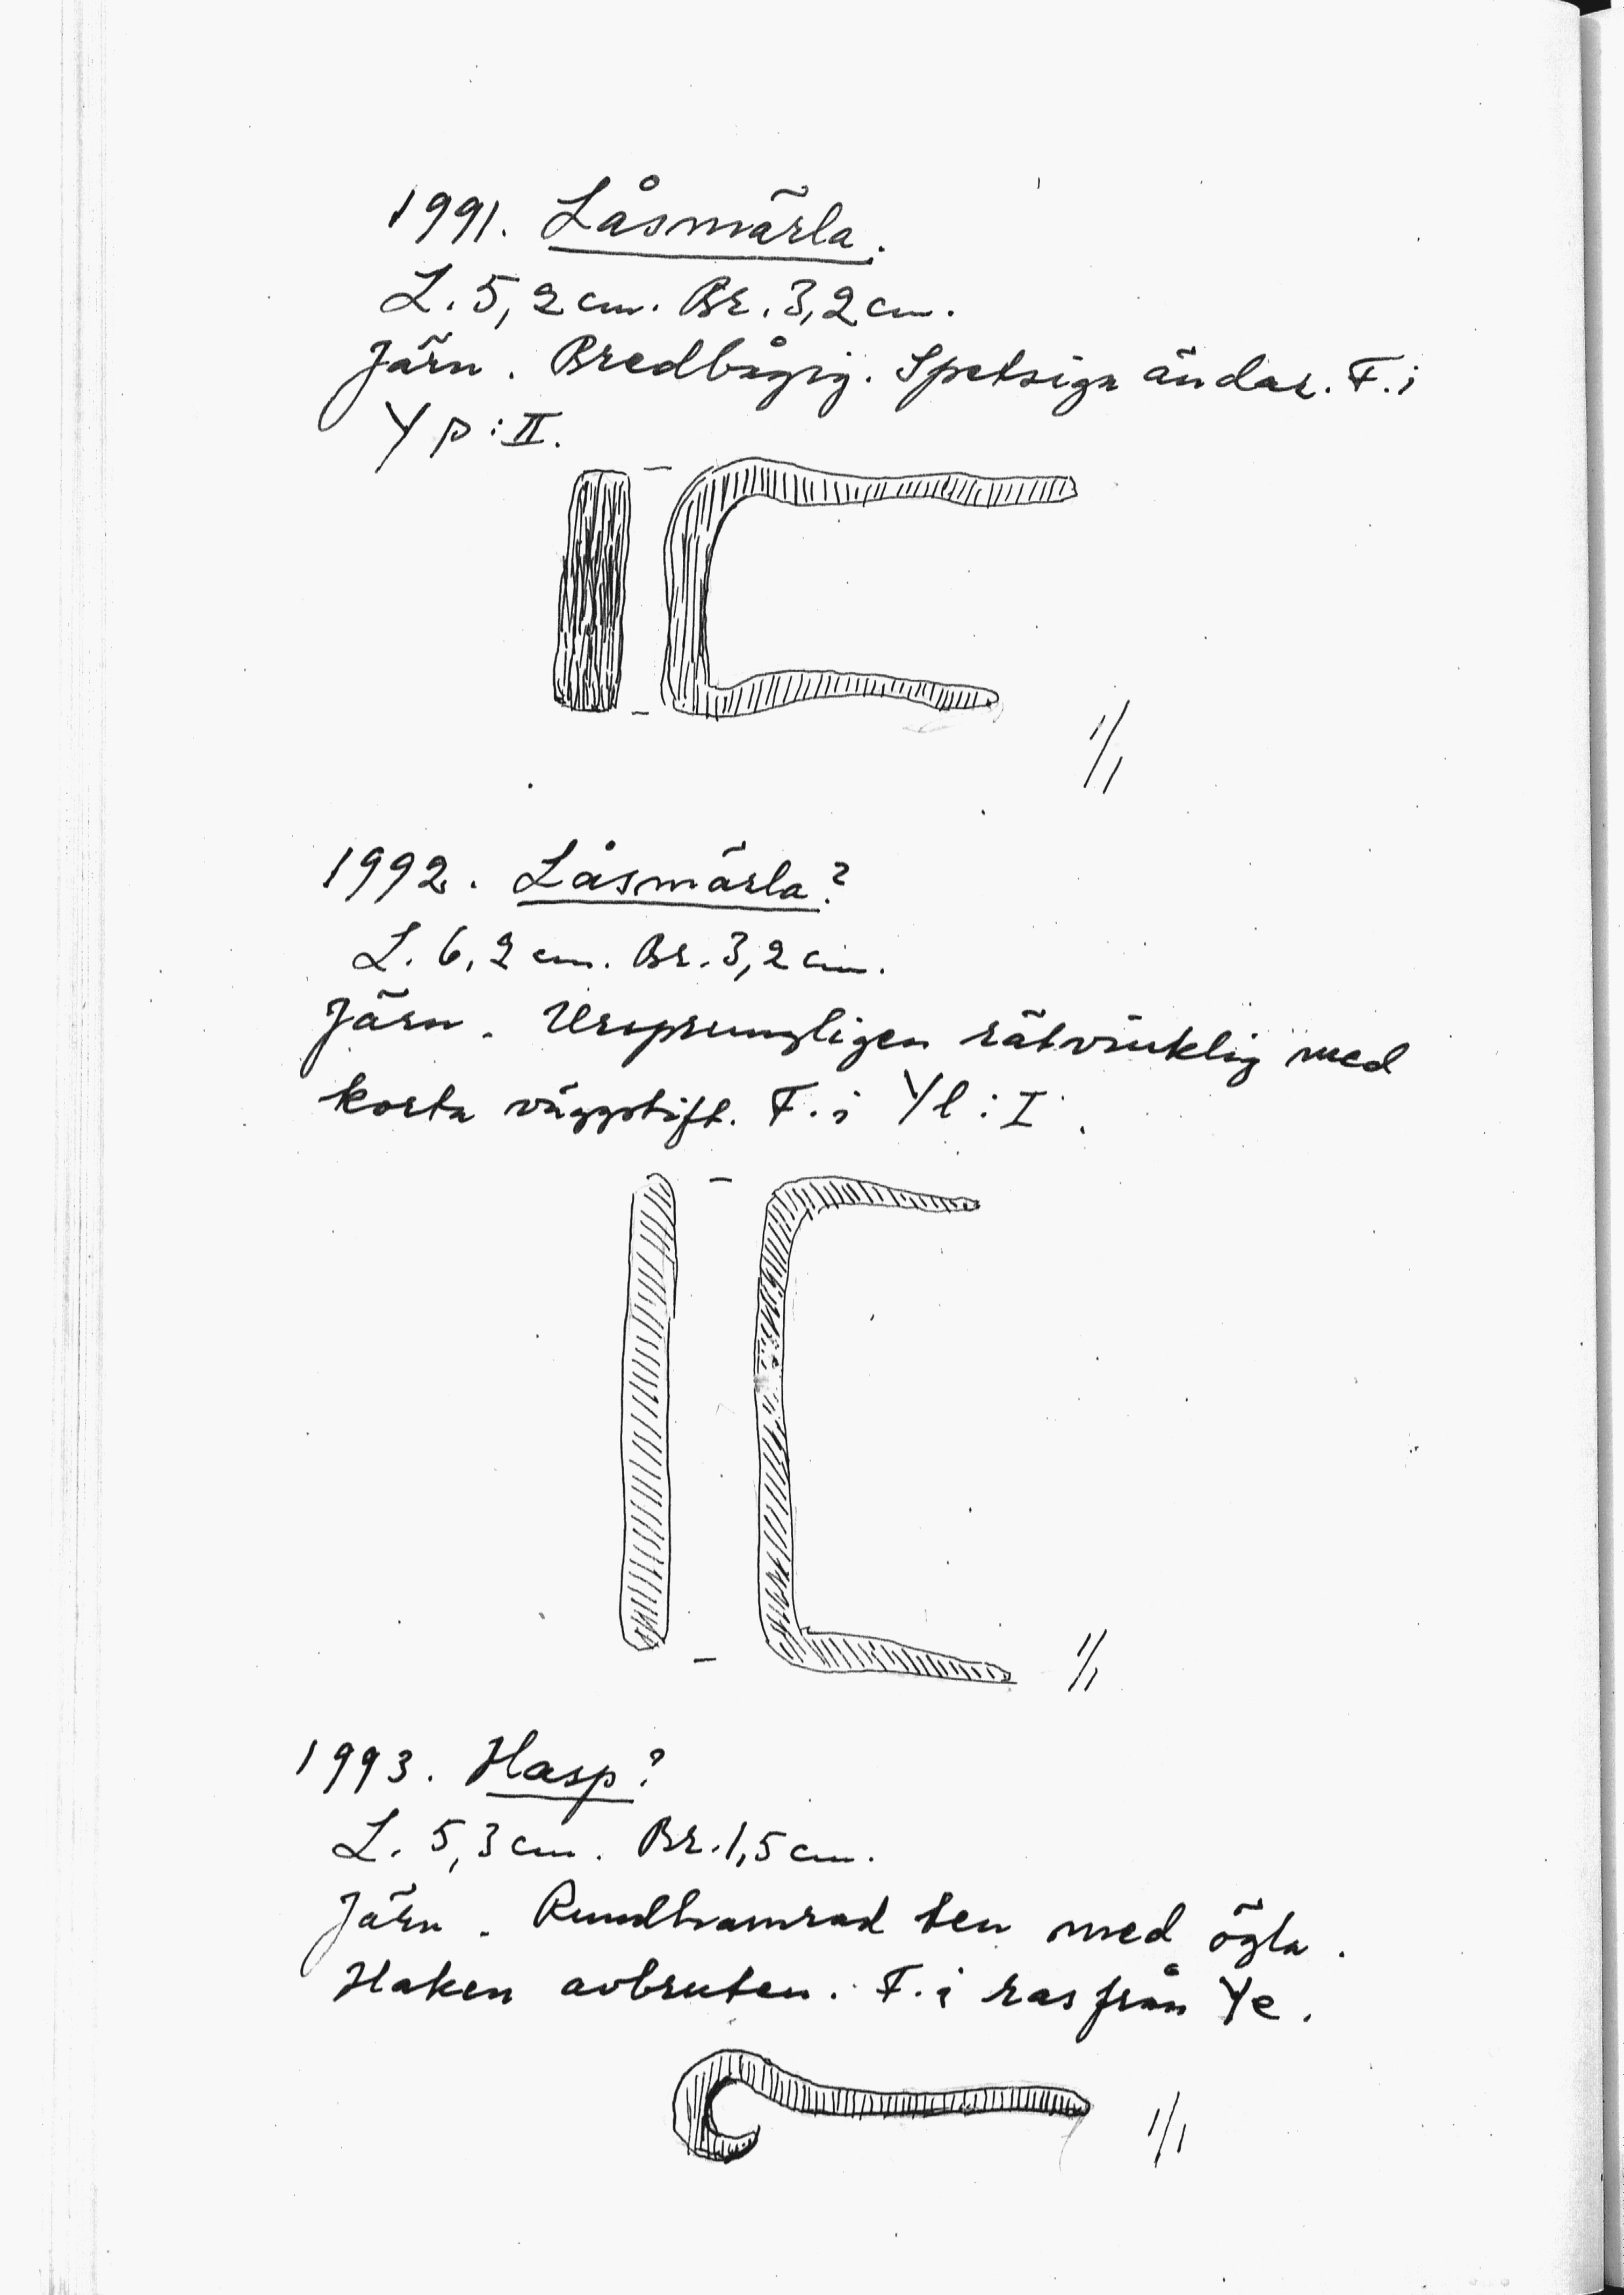 1991. Låsmärla.
L. 5,2 cm. Br. 3,2 cm.
Järn. Bredbågig. Spetsiga ändar. F. i
Yp:II.
1/1
1992. Låsmärla?
L. 6,2 cm. Br. 3,2 cm.
Järn. Ursprungligen rätvinklig med
korta väggstift. F. i Yl:I.
1/1
1993. Hasp?
L. 5,3 cm. Br. 1,5 cm.
Järn. Rundhamrad ten med ögla.
Haken avbruten. F. i ras från Ye.
1/1